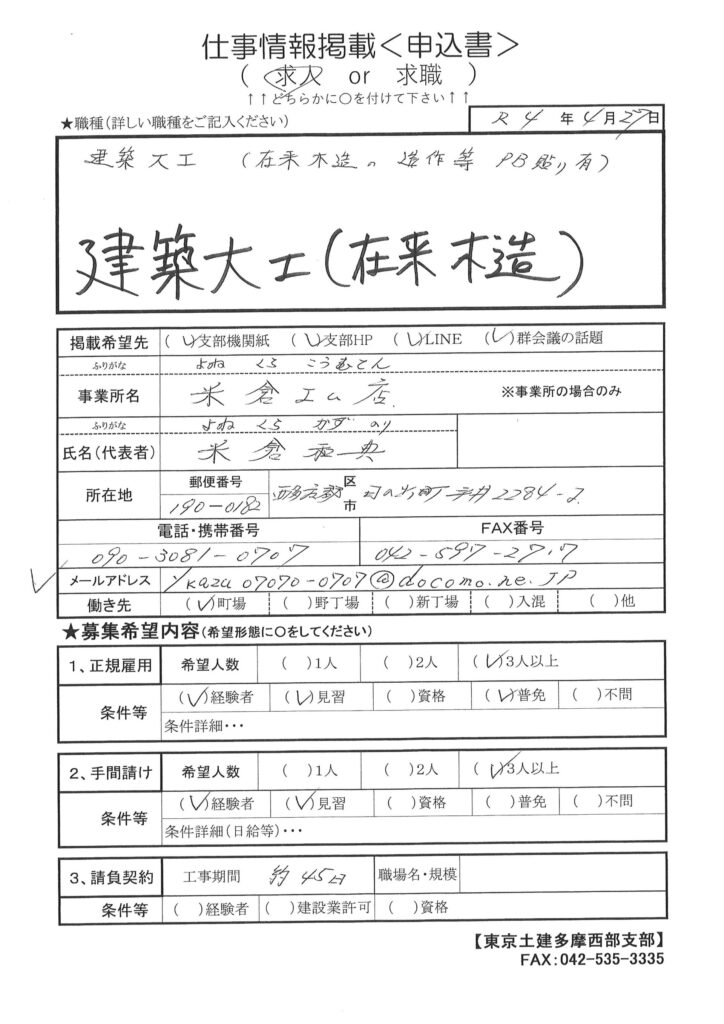 仕事情報掲載＜申込書＞
( 求人 or 求職 )
↑↑どちらかに○を付けて下さい↑↑
★職種（詳しい職種をご記入ください）
R 4 年 4 月 27 日
建築大工 （在来木造の造作等 PB貼り有）
建築大工（在来木造）
掲載希望先 (✓)支部機関紙 (✓)支部HP (✓)LINE (✓)群会議の話題
ふりがな よね くら こうむてん
事業所名 米倉工ム店 ※事業所の場合のみ
ふりがな よね くら かず のり
氏名（代表者） 米倉和典
所在地 郵便番号 区 市
190-0182 西多摩郡日の出町平井2284-2
電話・携帯番号 FAX番号
090-3081-0707 042-597-2717
✓ メールアドレス ykazu07070-0707@docomo.ne.JP
働き先 (✓)町場 ( )野丁場 ( )新丁場 ( )入混 ( )他
★募集希望内容（希望形態に○をしてください）
1、正規雇用 希望人数 ( )1人 ( )2人 (✓)3人以上
条件等 (✓)経験者 (✓)見習 ( )資格 (✓)普免 ( )不問
条件詳細・・・
2、手間請け 希望人数 ( )1人 ( )2人 (✓)3人以上
条件等 (✓)経験者 (✓)見習 ( )資格 ( )普免 ( )不問
条件詳細（日給等）・・・
3、請負契約 工事期間 約45日 職場名・規模
条件等 ( )経験者 ( )建設業許可 ( )資格
【東京土建多摩西部支部】
FAX：042-535-3335